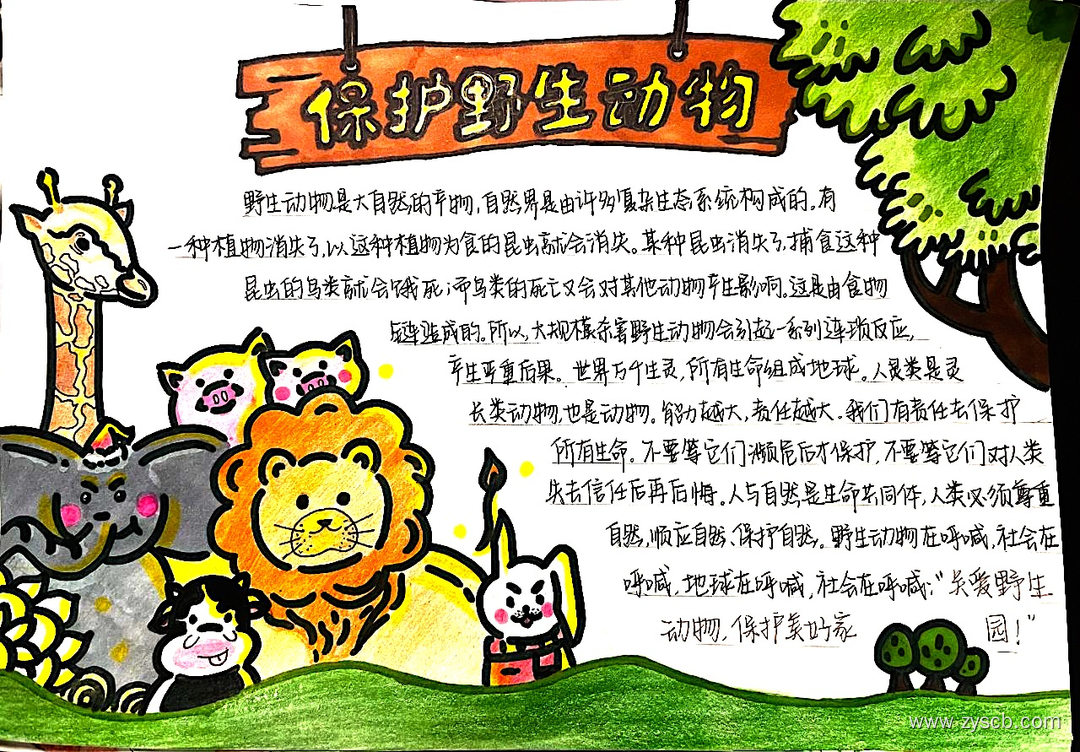 保护野生动物
野生动物是大自然的产物,自然界是由许多复杂生态系统构成的。有
一种植物消失了,以这种植物为食的昆虫就会消失。某种昆虫消失了,捕食这种
昆虫的鸟类就会饿死;而鸟类的死亡又会对其他动物产生影响。这是由食物
链造成的。所以,大规模杀害野生动物会引起一系列连锁反应,
产生严重后果。世界万千生灵,所有生命组成地球。人类是灵
长类动物,也是动物。能力越大,责任越大。我们有责任去保护
所有生命。不要等它们濒危后才保护,不要等它们对人类
失去信任后再后悔。人与自然是生命共同体,人类必须尊重
自然,顺应自然、保护自然。野生动物在呼喊,社会在
呼喊,地球在呼喊,社会在呼喊:“关爱野生
动物,保护美好家园!”
www.zyscb.com